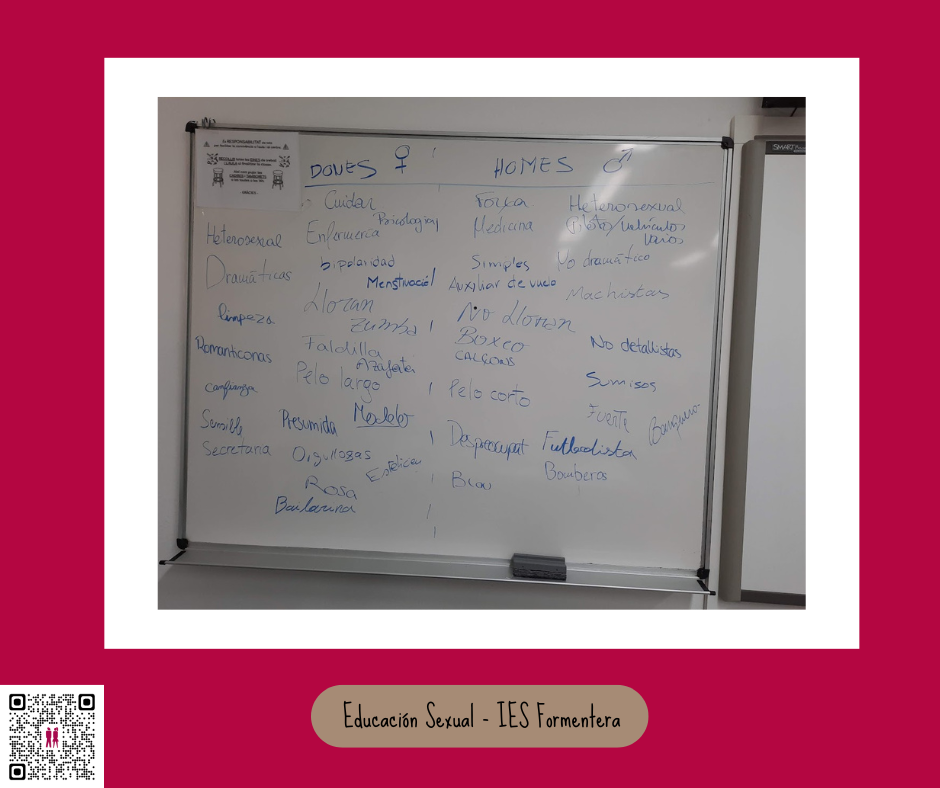 DONES ♀
HOMES ♂
Cuidar
Psicologia
Heterosexual
Enfermeria
bipolaridad
Dramáticas
Menstruació
Lloran
limpeza
Zumba
Romanticonas
Faldilla
Azafata
Pelo largo
confianza
Sensible
Presumida
Secretaria
Orgullosas
Rosa
Bailarina
Força
Heterosexual
Medicina
Piloto/vehículos
varios
Simples
No dramático
Auxiliar de vuelo
Machistas
No lloran
Boxeo
CALÇONS
No detallistas
Pelo corto
Sumisos
Fuerte
Despreocupat
Futbolista
Blau
Bomberos
SMART
Educación Sexual - IES Formentera